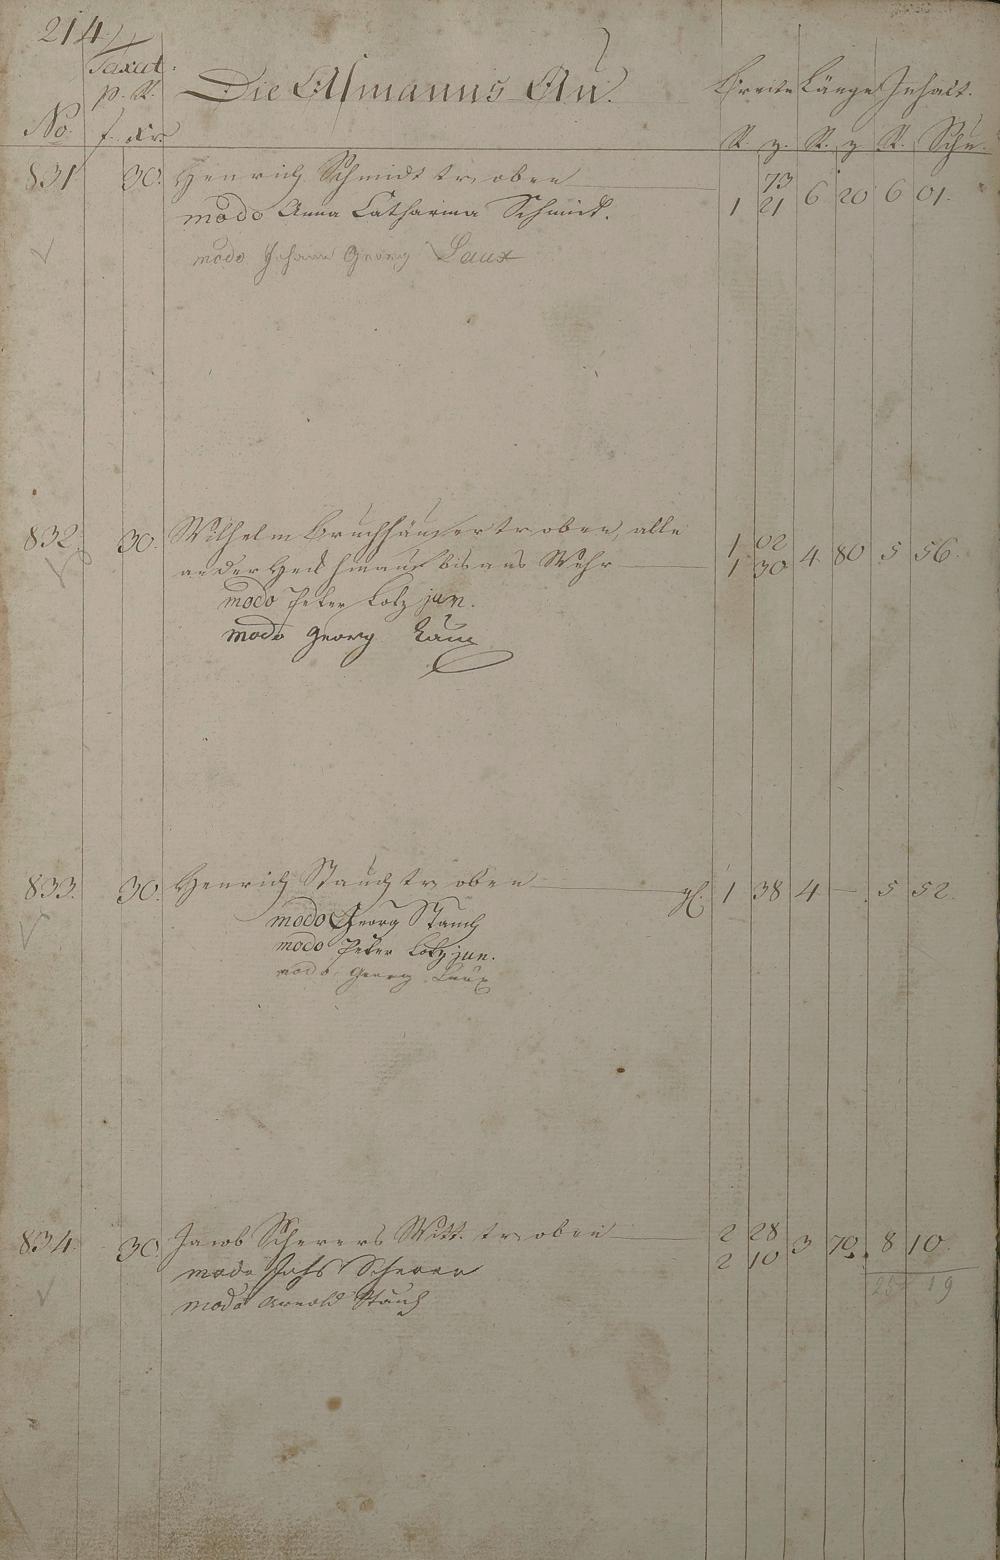 214
Taxat.
p. R.
Die Asmanns Au.
Breite Länge Inhalt.
No. f. Xr.
R. z. R. z R. Schu.
831 30. Henrich Schmidt tr. oben 73 6 20 6 01.
modo Anna Catharina Schmidt. 1 21
modo Johann Georg Laux
832 30. Wilhelm Bruchhäuser tr. oben, alle 1 02 4 80 5 56.
an der Heck hinauf bis ans Wehr 1 30
modo Peter Lotz jun.
modo Georg Laux
833. 30. Henrich Stauch tr. oben gl. 1 38 4 — 5 52.
modo Georg Stauch
modo Peter Lotz jun.
modo Georg Laux
834. 30. Jacob Scherers Witt. tr. oben 2 28 3 70. 8 10.
modo Johs Scherer 2 10
modo Arnold Stauch 25 19